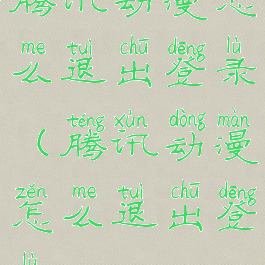 腾讯动漫怎
me tuì chū dēng lù
么退出登录
téng xùn dòng màn
(腾讯动漫
zěn me tuì chū dēng
怎么退出登
lù